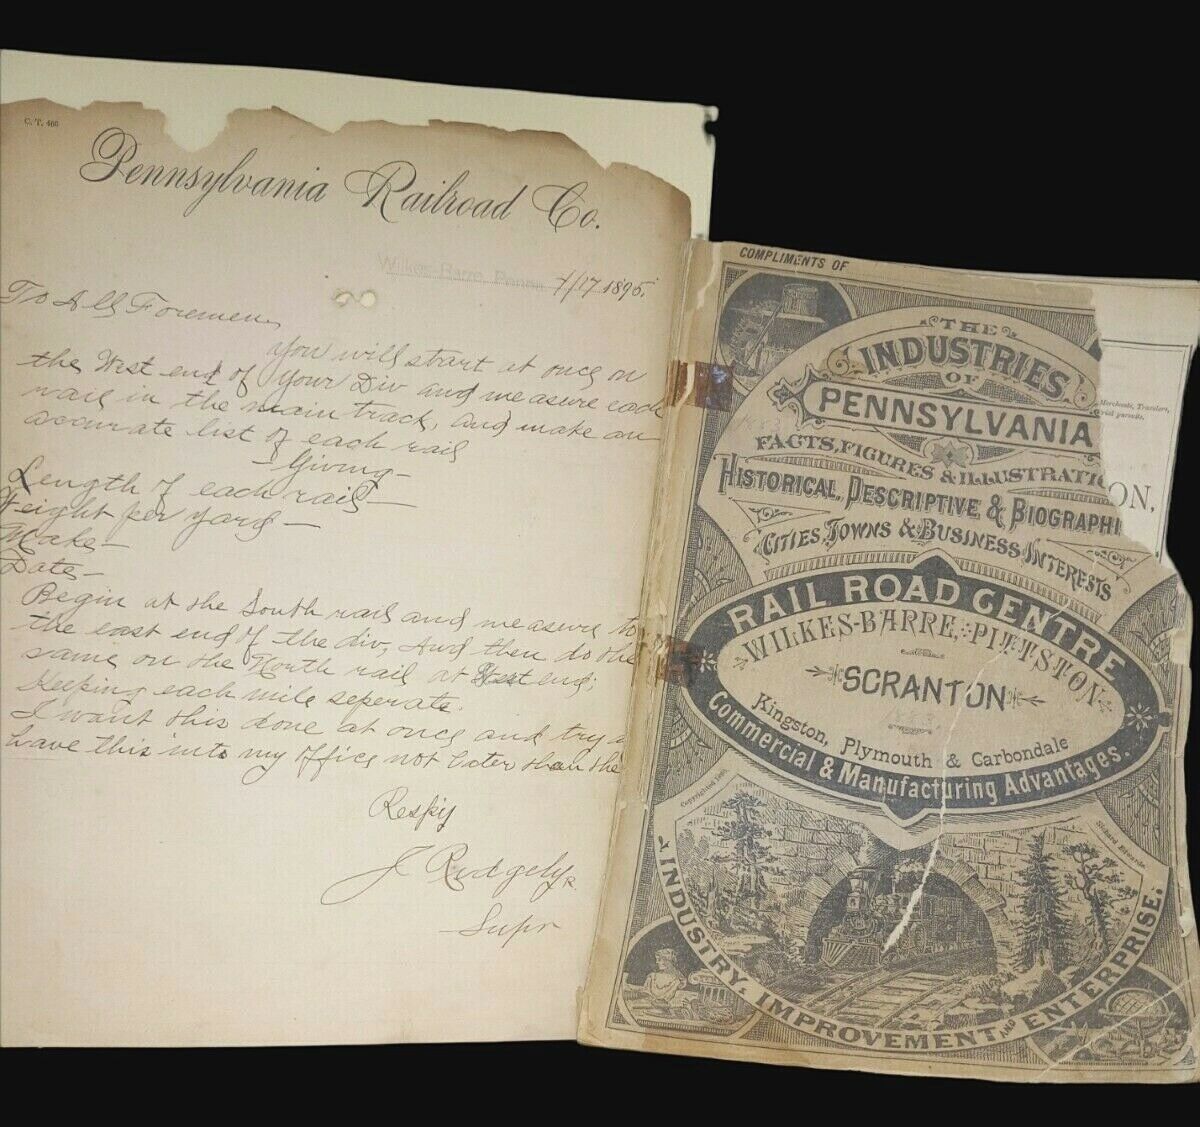 C. T. 466
Pennsylvania Railroad Co.
Wilkes-Barre, Penna. 7/17 1895.
To All Foremen,
You will start at once on
the West end of Your Div and measure each
rail in the main track, and make an
accurate list of each rail
- Giving -
Length of each rail -
Weight per yard -
Make -
Date -
Begin at the South rail and measure to
the east end of the div, And then do the
same on the North rail at West end;
Keeping each mile seperate.
I want this done at once and try
have this into my office not later than the
Respy
J Rudgely
Supr
COMPLIMENTS OF
THE
INDUSTRIES
OF
PENNSYLVANIA
FACTS, FIGURES & ILLUSTRATI
HISTORICAL, DESCRIPTIVE & BIOGRAPHI
CITIES, TOWNS & BUSINESS INTERESTS
RAIL ROAD CENTRE
WILKES-BARRE, PITTSTON
SCRANTON
Kingston, Plymouth & Carbondale
Commercial & Manufacturing Advantages.
Richard Edwards.
INDUSTRY, IMPROVEMENT AND ENTERPRISE.
Merchants, Travelers,
pursuits.
ON,